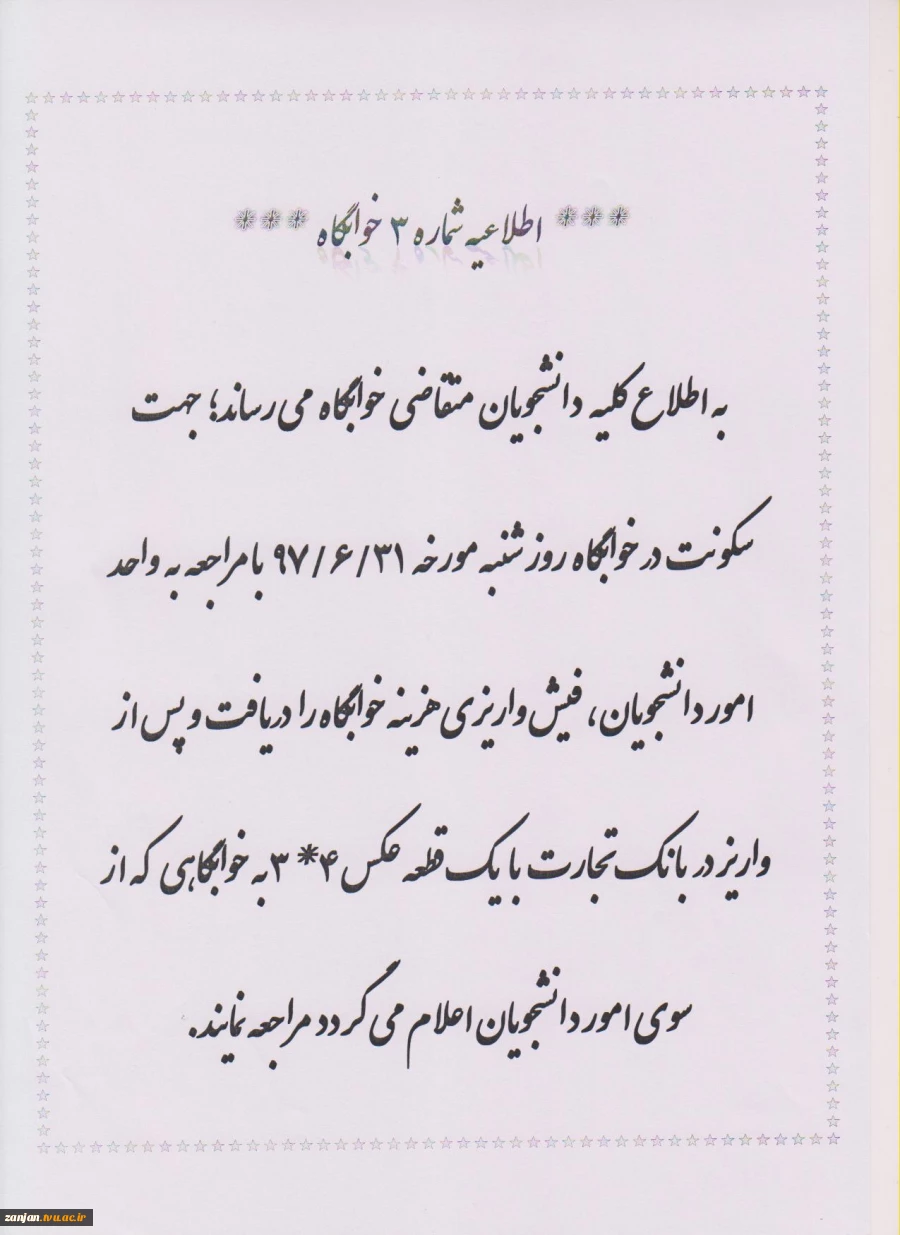 *** اطلاعیه شماره ۳ خوابگاه ***
به اطلاع کلیه دانشجویان متقاضی خوابگاه می رساند؛ جهت
سکونت در خوابگاه روز شنبه مورخه ۹۷/۶/۳۱ با مراجعه به واحد
امور دانشجویان، فیش واریزی هزینه خوابگاه را دریافت و پس از
واریز در بانک تجارت با یک قطعه عکس ۴*۳ به خوابگاهی که از
سوی امور دانشجویان اعلام می گردد مراجعه نمایند.
zanjan.tvu.ac.ir